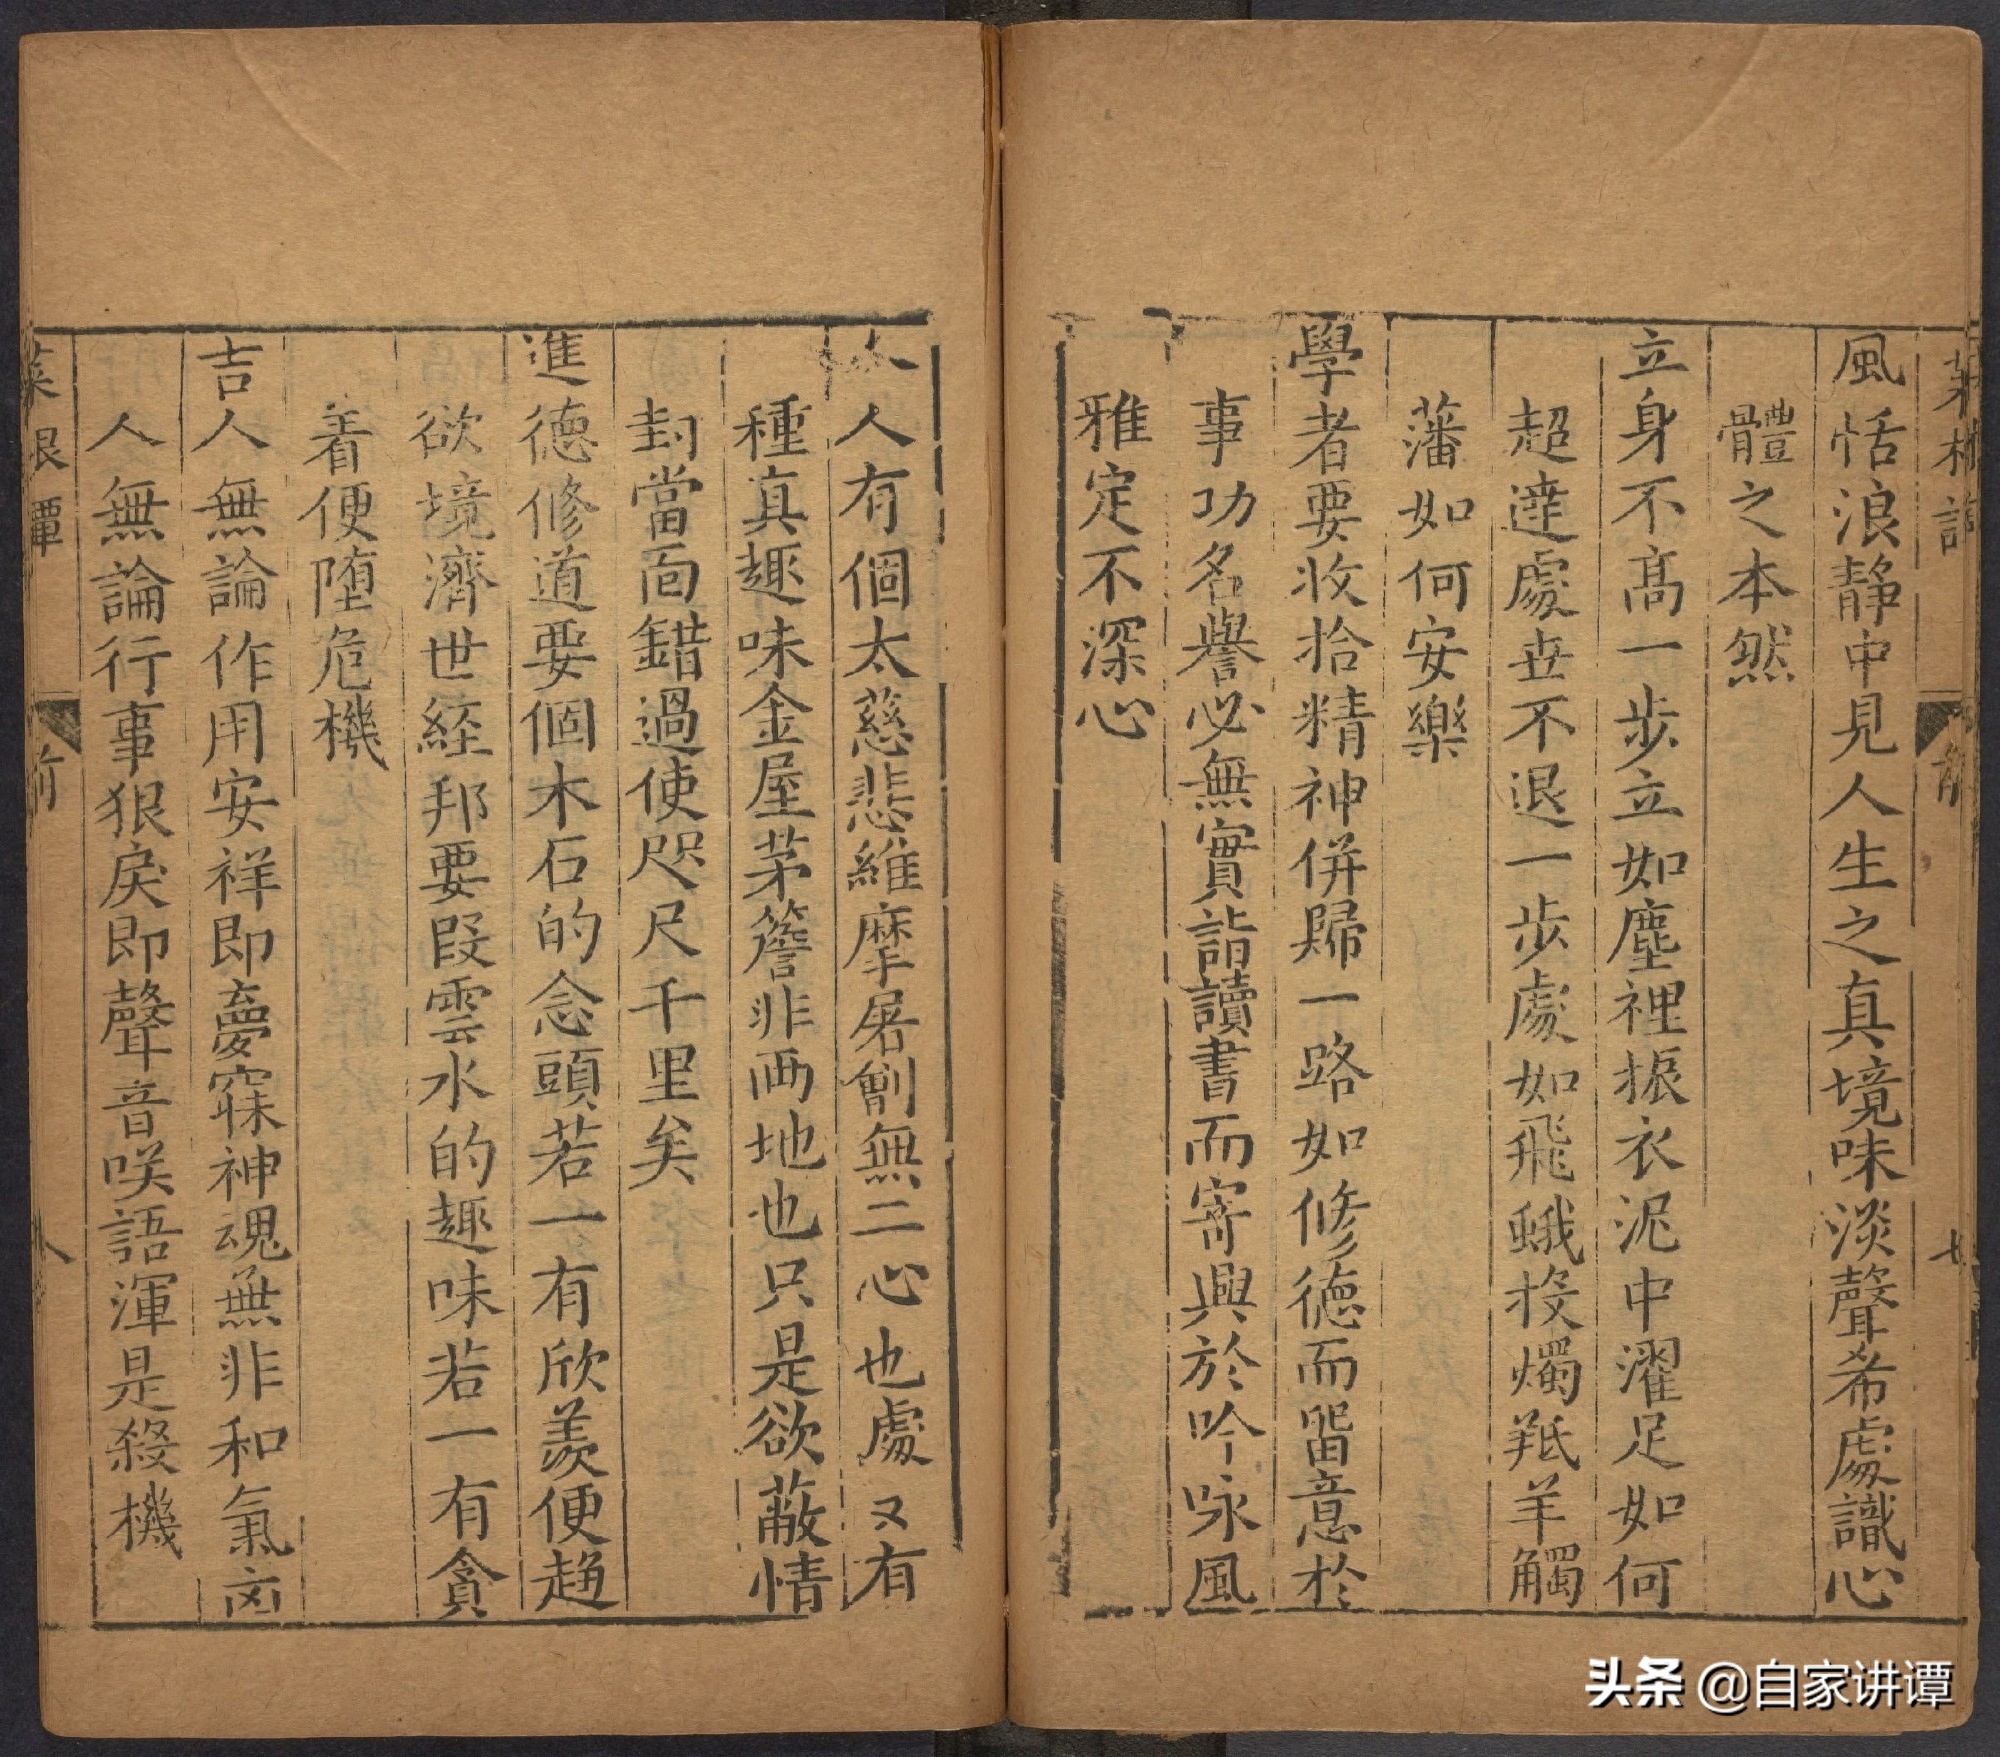 風恬浪静中見人生之真境味淡聲希處識心
體之本然
立身不髙一步立如塵裡振衣泥中濯足如何
超達處世不退一步處如飛蛾投燭羝羊觸
藩如何安樂
學者要收拾精神併歸一路如修德而留意於
事功名譽必無實詣讀書而寄興於吟咏風
雅定不深心
人人有個太慈悲維摩屠劊無二心也處又有
種真趣味金屋茅簷非兩地也只是欲蔽情
封當面錯過使咫尺千里矣
進德修道要個木石的念頭若一有欣羨便趨
欲境濟世経邦要段雲水的趣味若一有貪
着便堕危機
吉人無論作用安祥即夢寐神魂無非和氣凶
人無論行事狠戾即聲音咲語渾是殺機
菜根譚
前
八
头条 @自家讲谭